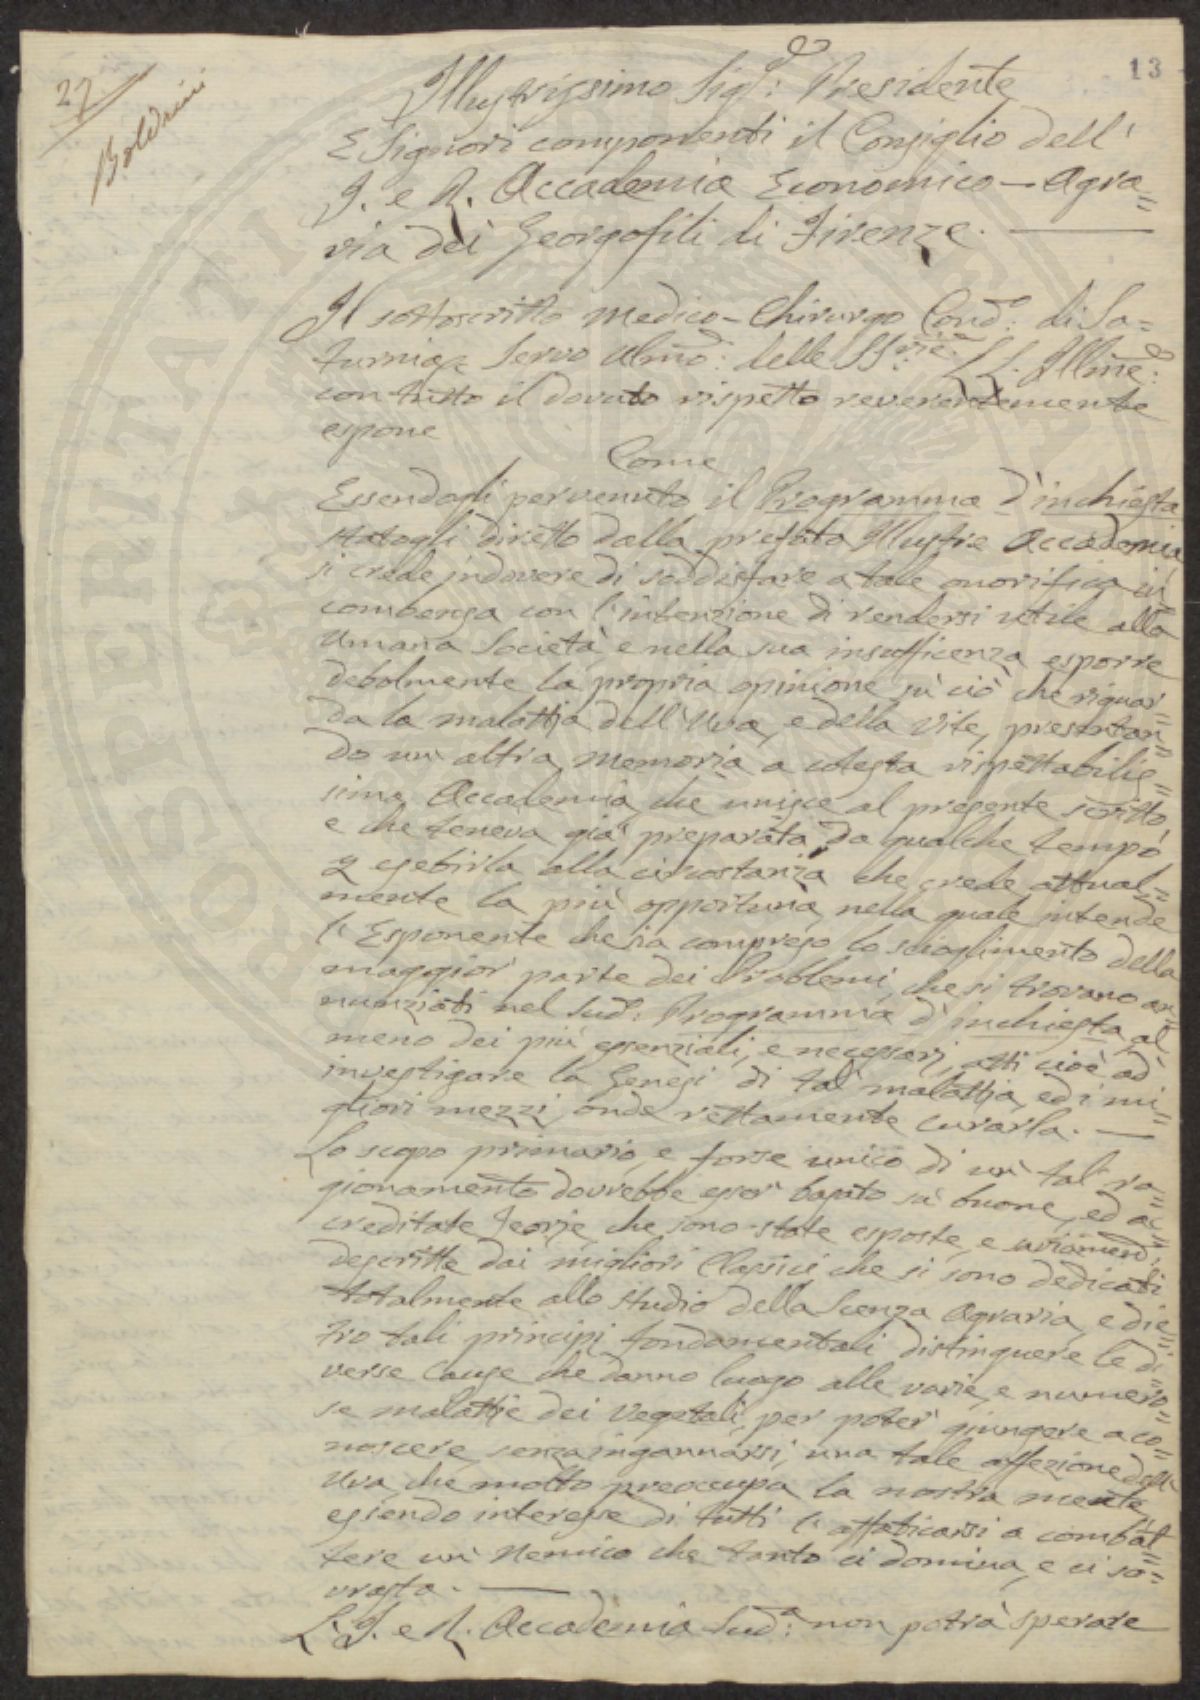 13
27
Boldrini
Illustrissimo Sig.e: Presidente
E Signori componenti il Consiglio dell'
I. e R. Accademia Economico-Agra=
ria dei Georgofili di Firenze.
Il sottoscritto Medico-Chirurgo Cond.o: di Sa=
turnia Servo Umo: delle SS.rie: LL. Illme:
con tutto il dovuto rispetto reverentemente
espone
Come
Essendogli pervenuto il Programma d'inchiesta
statogli diretto dalla prefata Illustre Accademia,
si crede in dovere di soddisfare a tale onorifica in=
combenza con l'intenzione di rendersi utile alla
Umana Società, e nella sua insufficenza esporre
debolmente la propria opinione sù ciò che riguar=
da la malattia dell'Uva, e della Vite, presentan=
do un'altra Memoria a cotesta rispettabilis=
sima Accademia, che unisce al presente scritto,
e che teneva già preparata da qualche tempo
p esebirla alla circostanza che crede attual=
mente la più opportuna, nella quale intende
l'Esponente che sia compreso lo scioglimento della
maggior parte dei Problemi, che si trovano an=
nunziati nel Sud.o: Programma d'inchiesta al=
meno dei più essenziali, e necessarj, atti cioè ad
investigare la Genesi di tal malattia, ed i mi=
gliori mezzi onde rettamente curarla. —
Lo scopo primario, e forse unico di un tal ra=
gionamento dovrebbe esser basato sù buone, ed ac=
creditate Teorie, che sono state esposte, e
descritte dai migliori Classici che si sono dedicati
totalmente allo studio della Scenza Agraria, e die=
tro tali principj fondamentali distinguere le di=
verse Cause che danno luogo alle varie, e numero=
se malattie dei Vegetali, per poter giungere a co=
noscere senza ingannarsi, una tale affezione dell'
Uva, che molto preoccupa la nostra mente,
essendo interesse di tutti l'affaticarsi a combat=
tere un Nemico che tanto ci domina, e ci so=
vrasta. —
L'I. e R. Accademia Sud.a: non potrà sperare